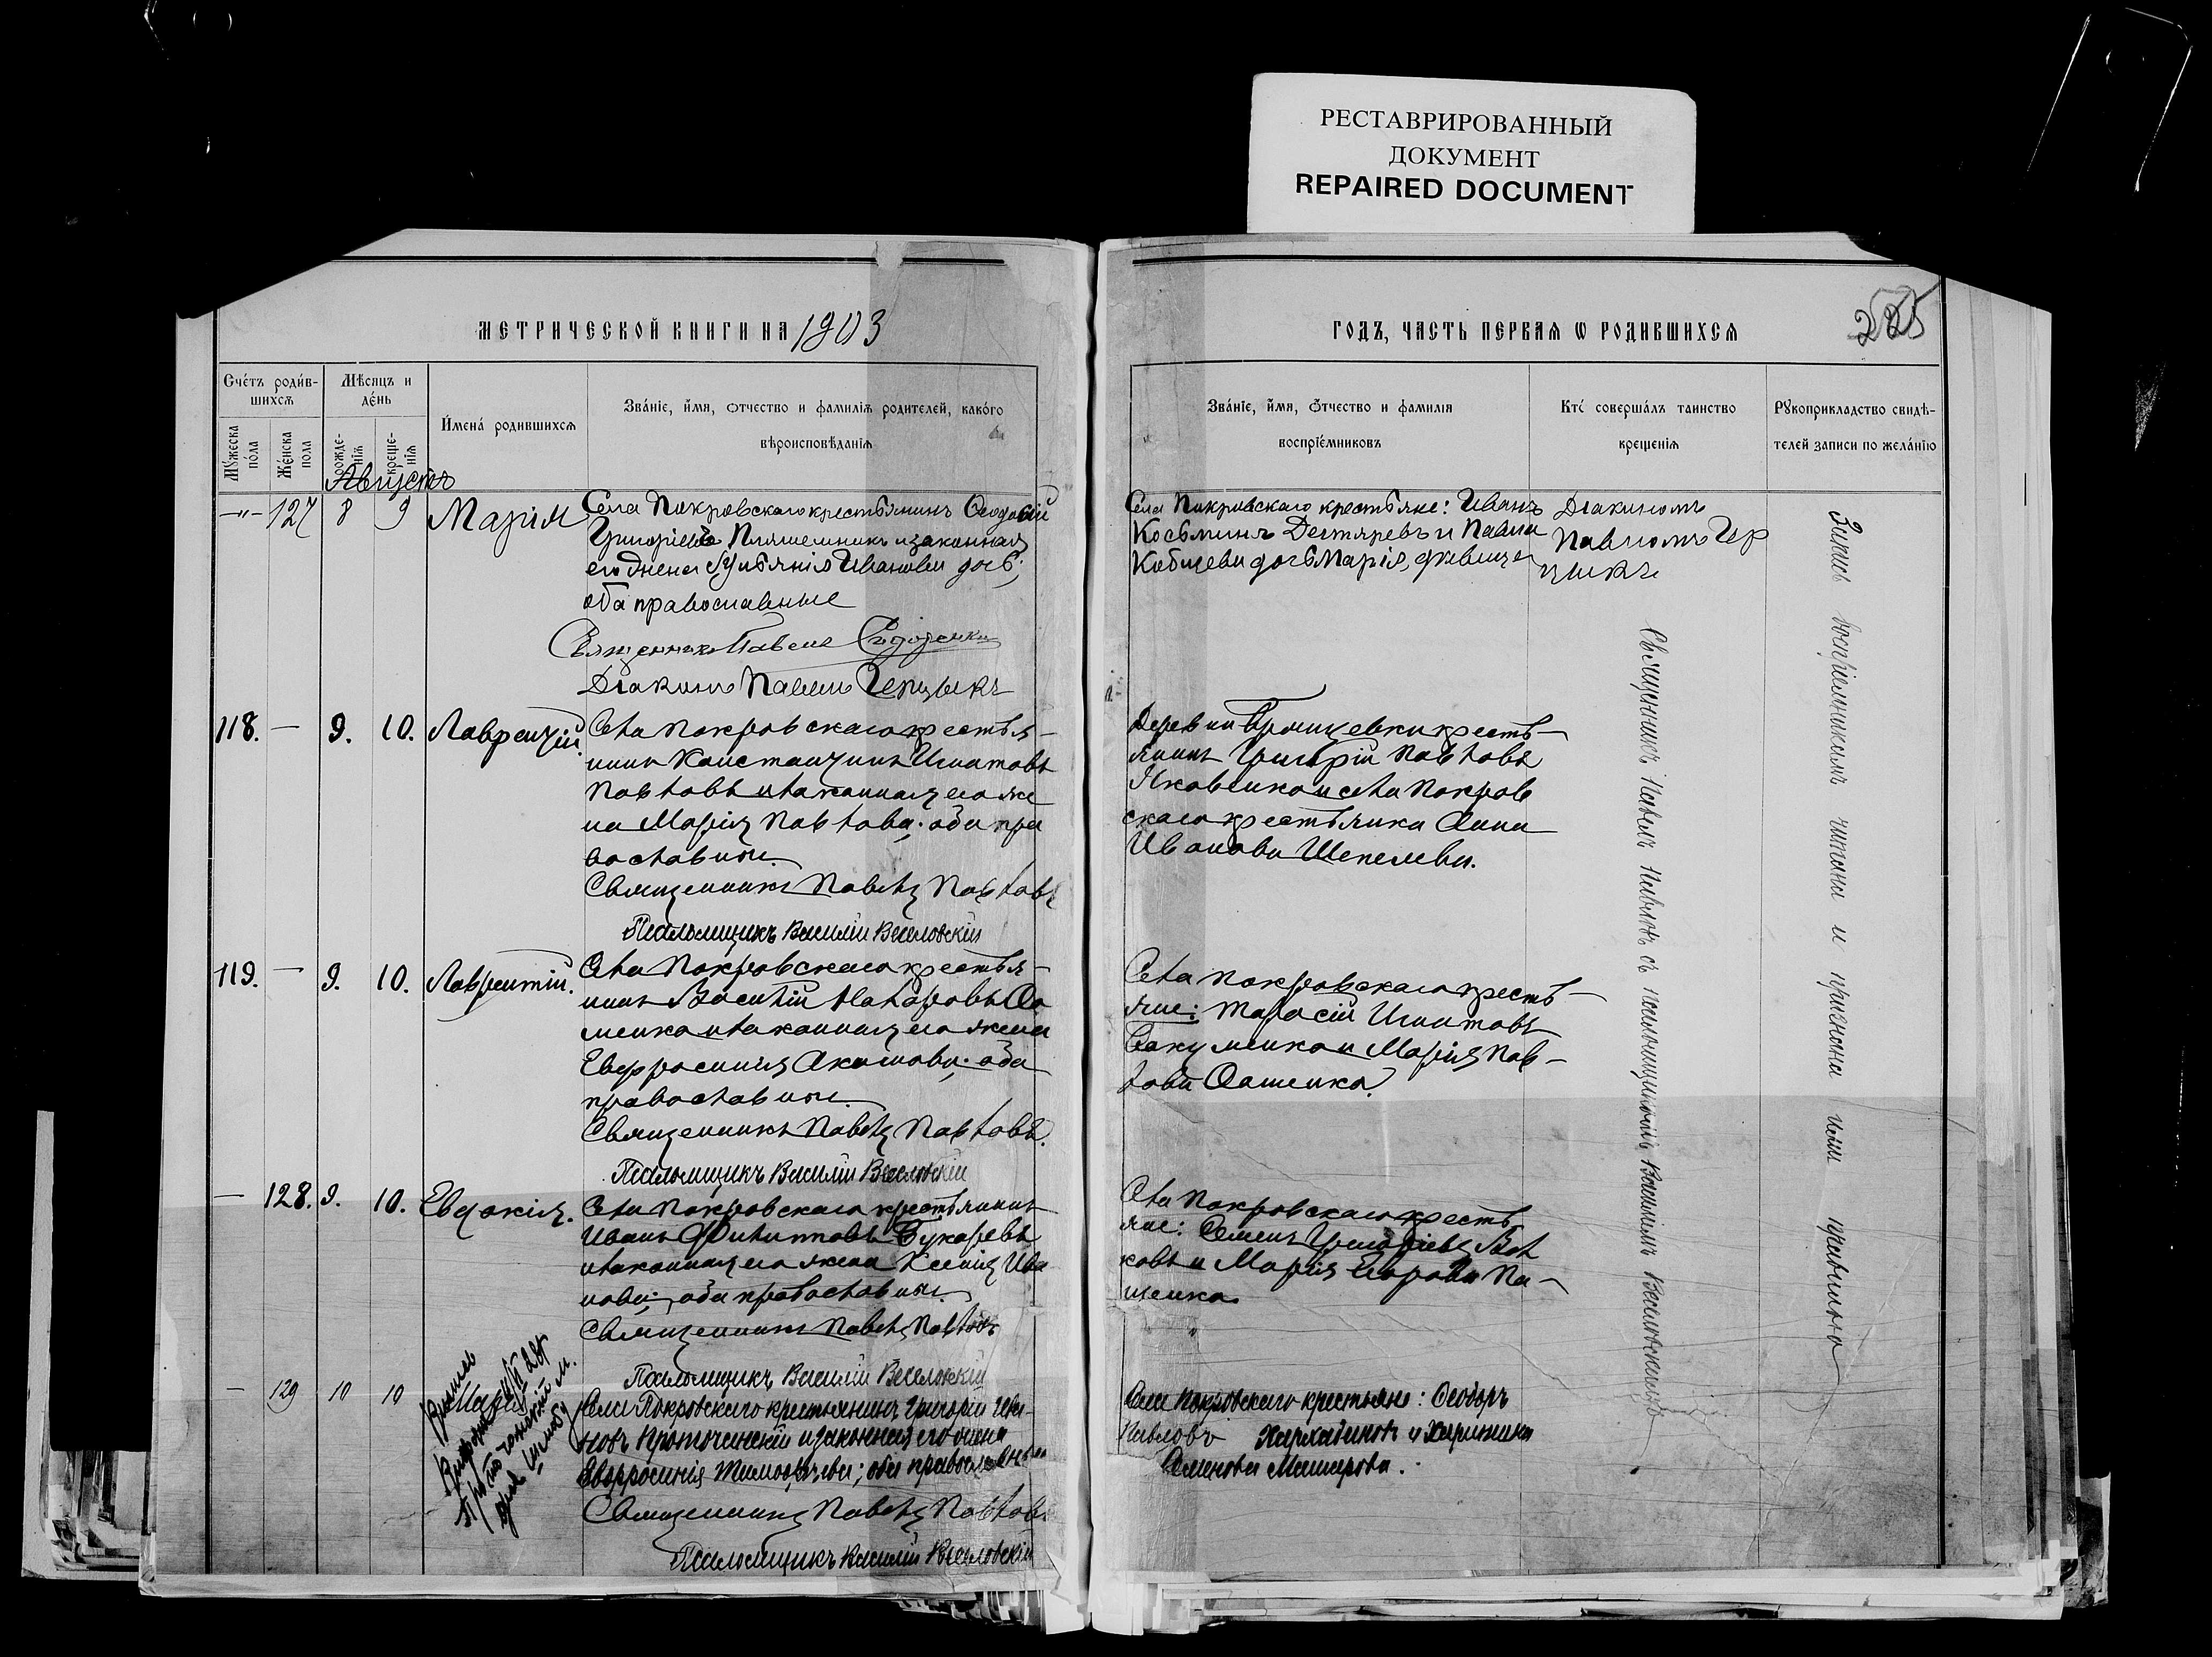 РЕСТАВРИРОВАННЫЙ
ДОКУМЕНТ
REPAIRED DOCUMENT
МЕТРИЧЕСКОЙ КНИГИ НА 1903
ГОДЪ, ЧАСТЬ ПЕРВАЯ Ѡ РОДИВШИХСЯ
285
Счетъ родив-
шихся
Мужеска пола
Женска пола
Мѣсяцъ и день
рожде-
нія
креще-
нія
Имена родившихся
Званіе, имя, отчество и фамилія родителей, какого
вѣроисповѣданія
Званіе, имя, отчество и фамилія
воспріемниковъ
Кто совершалъ таинство
крещенія
Рукоприкладство свидѣ-
телей записи по желанію
Августъ
-"- 127 8 9 Марія
Села Покровскаго крестьянинъ Ѳеодосій
Григоріевъ и законная
его жена Ульянія Иванова дочь;
оба православные
Священникъ Павелъ
Діаконъ Павелъ Герцыкъ
Села Покровскаго крестьяне: Иванъ
Косьминъ Дегтяревъ и Павла
дочь Марія, дѣвица
Діакономъ
Павломъ Гер
цыкъ
118. — 9. 10. Лаврентій.
Села Покровскаго крестья-
нинъ Константинъ Игнатовъ
Павловъ и законная его же
на Марія Павлова; оба пра
вославные.
Священникъ Павелъ Павловъ
Псаломщикъ Василій Веселовскій
Деревни кресть-
янинъ Григорій Павловъ
Яковенко и села Покров
скаго крестьянка Анна
Иванова Шепелева.
119. — 9. 10. Лаврентій.
Села Покровскаго крестья-
нинъ Василій Назаровъ
менко и законная его жена
Евфросинія Акимова; оба
православные.
Священникъ Павелъ Павловъ.
Псаломщикъ Василій Веселовскій
Села Покровскаго кресть-
яне: Тарасій Игнатовъ
и Марія Пав-
лова
— 128. 9. 10. Евдокія.
Села Покровскаго крестьянинъ
Иванъ Филипповъ Бухаревъ
и законная его жена Ксенія Ива
нова; оба православные.
Священникъ Павелъ Павловъ
Псаломщикъ Василій Веселовскій
Села Покровскаго кресть
яне: Семенъ Григоріевъ Вол
ковъ и Марія Егорова Па-
щенко
— 129 10 10 Марія
Села Покровскаго крестьянинъ Григорій Ива-
новъ Проточанскій и законная его жена
Евфросинія Тимоѳеева; оба православные
Священникъ Павелъ Павловъ
Псаломщикъ Василій Веселовскій
Села Покровскаго крестьяне: Ѳеодоръ
Павловъ и
Семенова
Священникъ Павелъ Павловъ съ псаломщикомъ Василіемъ Веселовскимъ
Запись воспріемникамъ читана и признана ими правильно